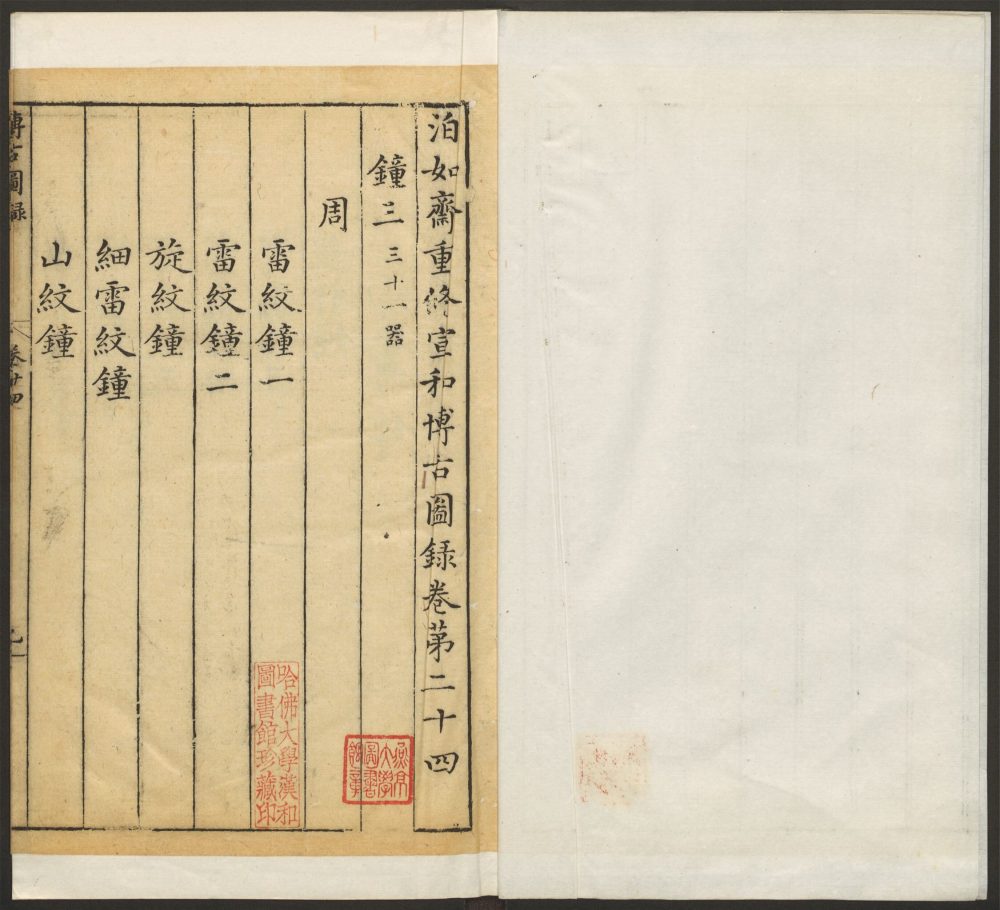 泊如齋重修宣和博古圖録卷第二十四
鐘三 三十一器
周
雷紋鐘一
雷紋鐘二
旋紋鐘
細雷紋鐘
山紋鐘
博古圖録 卷廿四
哈佛大學漢和
圖書館珍藏印
燕京
大學
圖書